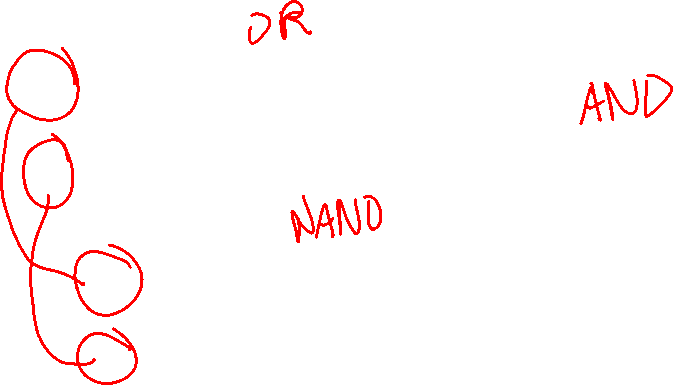 OR
AND
NAND